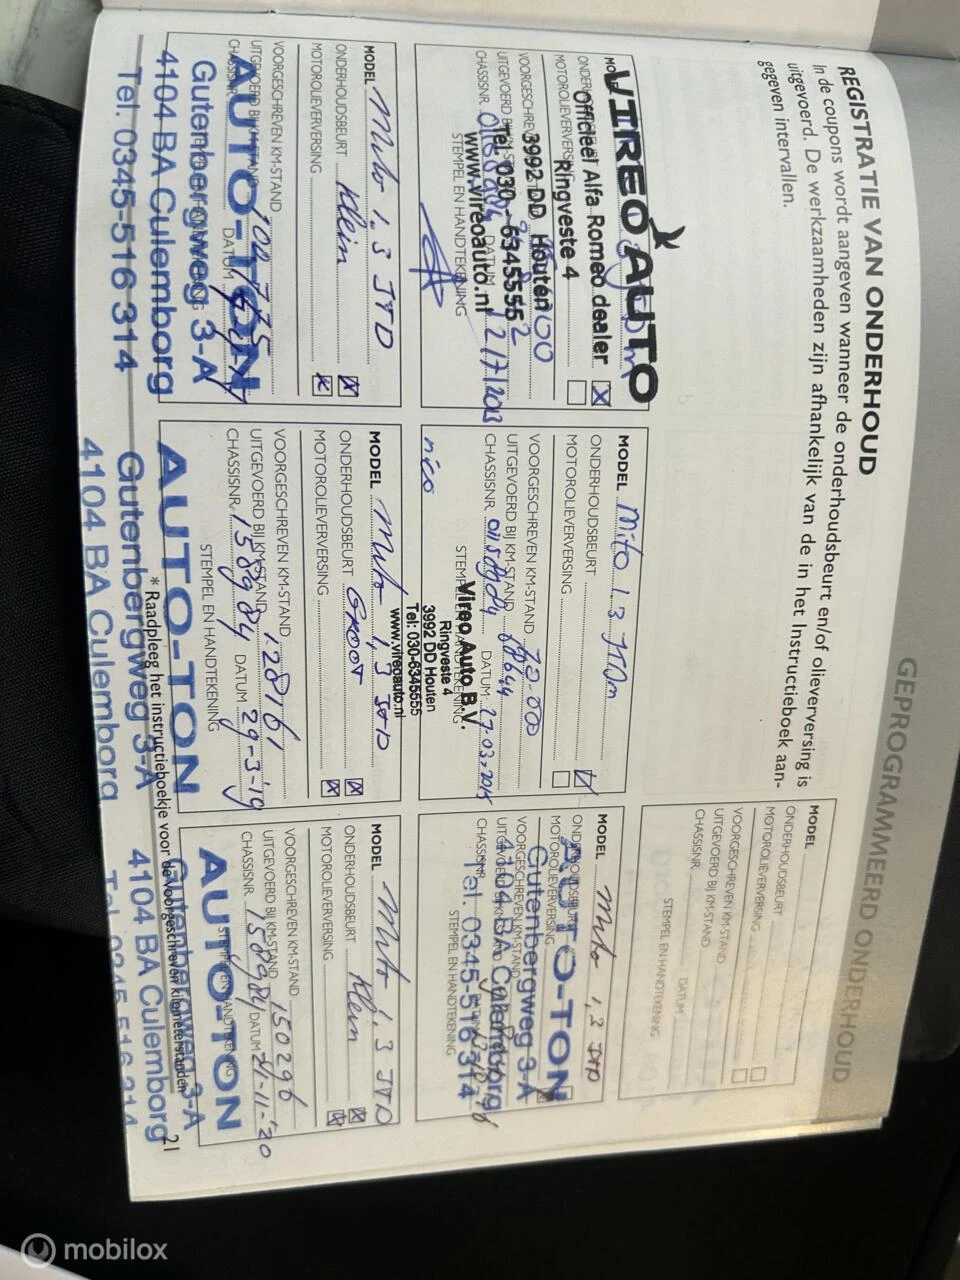 GEPROGRAMMEERD ONDERHOUD
REGISTRATIE VAN ONDERHOUD
In de coupons wordt aangeven wanneer de onderhoudsbeurt en/of olieverversing is
uitgevoerd. De werkzaamheden zijn afhankelijk van de in het Instructieboek aan-
gegeven intervallen.
MODEL
ONDERHOUDSBEURT
MOTOROLIEVERVERSING
VOORGESCHREVEN KM-STAND
UITGEVOERD BIJ KM-STAND
CHASSISNR. DATUM
STEMPEL EN HANDTEKENING
VIREO AUTO
Officieel Alfa Romeo dealer
Ringveste 4
3992 DD Houten
Tel. 030 - 6345555
www.vireoauto.nl
CHASSISNR. DATUM 2171 2013
STEMPEL EN HANDTEKENING
MODEL Mito 1.3 JTDm
ONDERHOUDSBEURT
MOTOROLIEVERVERSING
VOORGESCHREVEN KM-STAND 70.000
UITGEVOERD BIJ KM-STAND 68644
CHASSISNR. DATUM 27-03-2015
STEMPEL EN HANDTEKENING
nico
Vireo Auto B.V.
Ringveste 4
3992 DD Houten
Tel: 030-6345555
www.vireoauto.nl
MODEL Mito 1,3 JTD
ONDERHOUDSBEURT
MOTOROLIEVERVERSING
VOORGESCHREVEN KM-STAND
STEMPEL EN HANDTEKENING
AUTO-TON
Gutenbergweg 3-A
4104 BA Culemborg
Tel. 0345-516 314
MODEL Mito 1,3 JTD
ONDERHOUDSBEURT Klein
MOTOROLIEVERVERSING
VOORGESCHREVEN KM-STAND
UITGEVOERD BIJ KM-STAND
CHASSISNR. DATUM
AUTO-TON
Gutenbergweg 3-A
4104 BA Culemborg
Tel. 0345-516 314
MODEL Mito 1,3 JTD
ONDERHOUDSBEURT Groot
MOTOROLIEVERVERSING
VOORGESCHREVEN KM-STAND
UITGEVOERD BIJ KM-STAND 128161
CHASSISNR. 158984 DATUM 29-3-'19
STEMPEL EN HANDTEKENING
AUTO-TON
Gutenbergweg 3-A
4104 BA Culemborg
MODEL Mito 1.3 JTD
ONDERHOUDSBEURT Klein
MOTOROLIEVERVERSING
VOORGESCHREVEN KM-STAND
UITGEVOERD BIJ KM-STAND 150296
CHASSISNR. 158984 DATUM 24-11-'20
STEMPEL EN HANDTEKENING
AUTO-TON
Gutenbergweg 3-A
4104 BA Culemborg
Tel. 0345-516 314
* Raadpleeg het instructieboekje voor de voorgeschreven kilometerstanden
21
mobilox